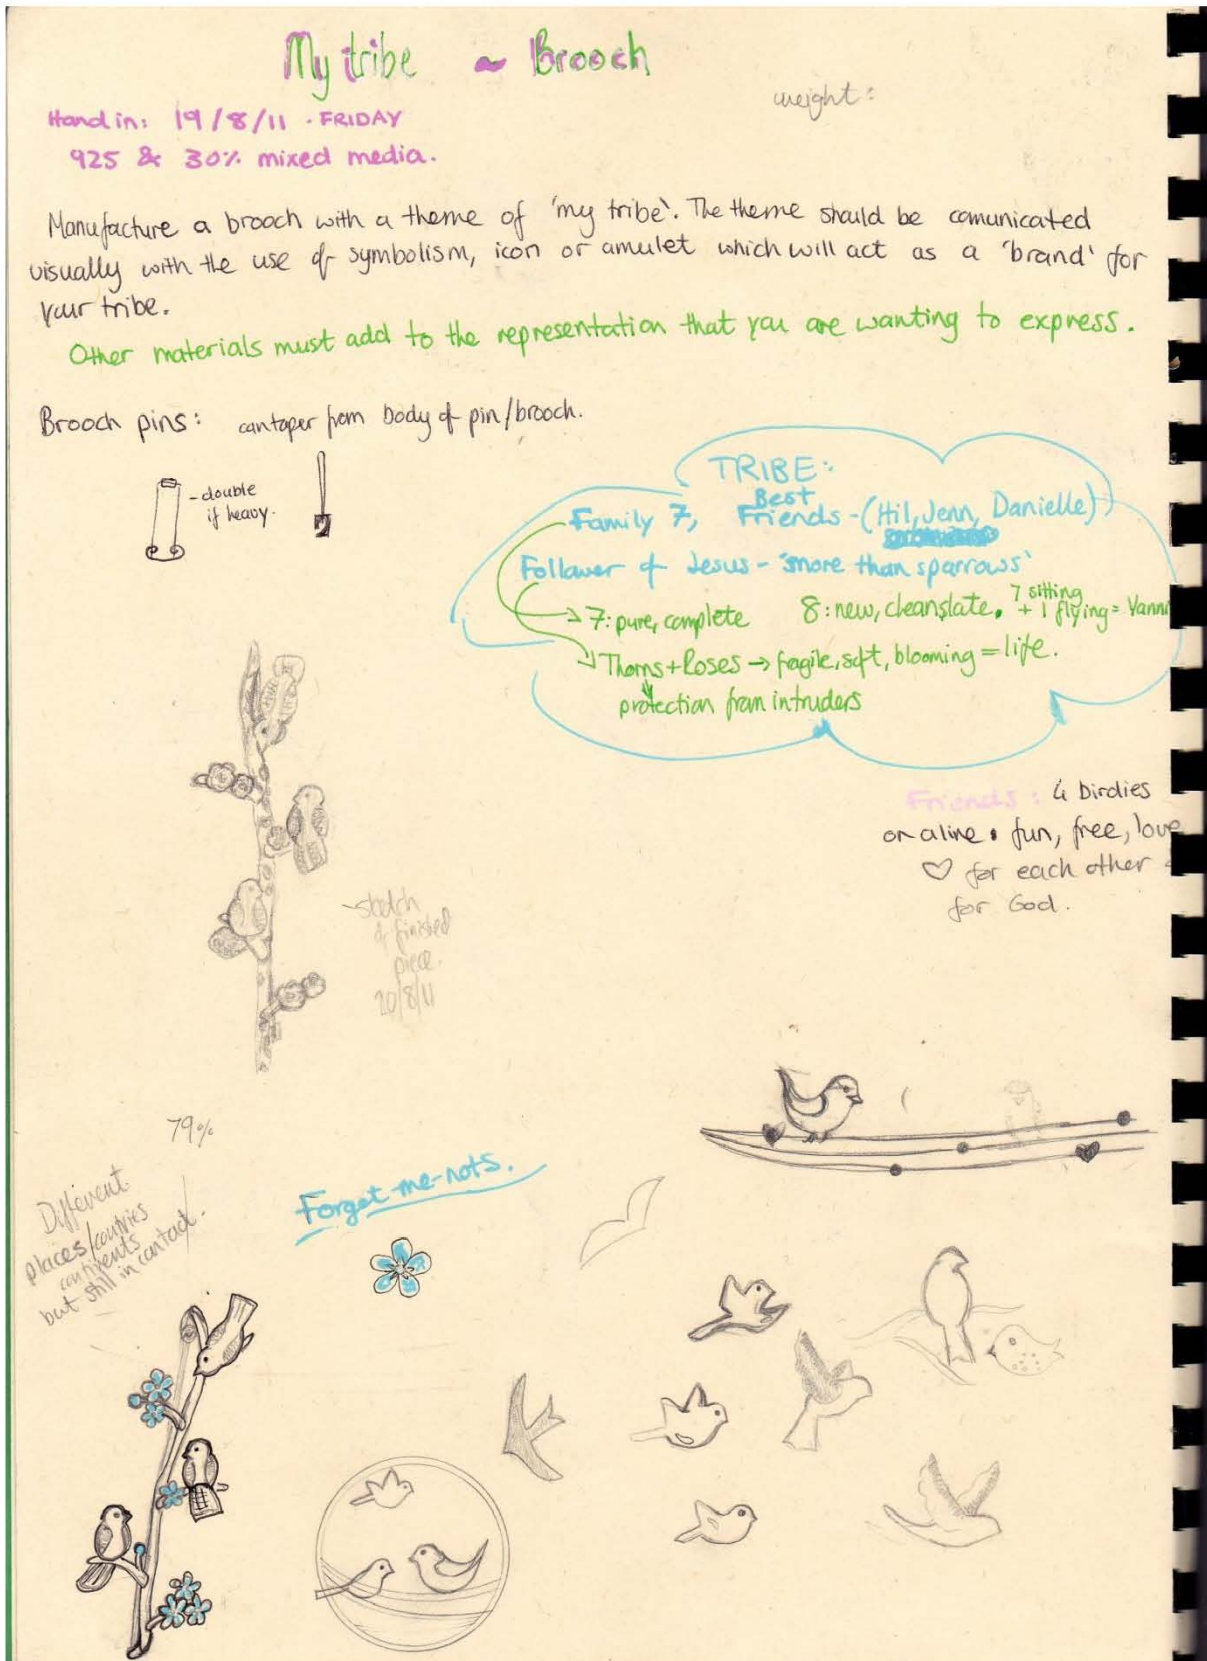 My tribe ~ Brooch
weight:
Hand in: 19/8/11 . FRIDAY
925 & 30% mixed media.
Manufacture a brooch with a theme of 'my tribe'. The theme should be comunicated
visually with the use of symbolism, icon or amulet which will act as a 'brand' for
your tribe.
Other materials must add to the representation that you are wanting to express.
Brooch pins: can taper from body of pin/brooch.
- double
if heavy.
TRIBE:
Best
Family 7, Friends - (Hil, Jenn, Danielle)
Follower of Jesus - 'more than sparrows'
7: pure, complete
8: new, cleanslate.
7 sitting
+ 1 flying = Yanni
Thorns + Roses → fragile, soft, blooming = life.
protection from intruders
Friends: 4 birdies
on a line. fun, free, love
♡ for each other
for God.
- sketch
of finished
piece.
20/8/11
79%
Different
places/countries
continents
but still in contact.
Forget-me-nots.